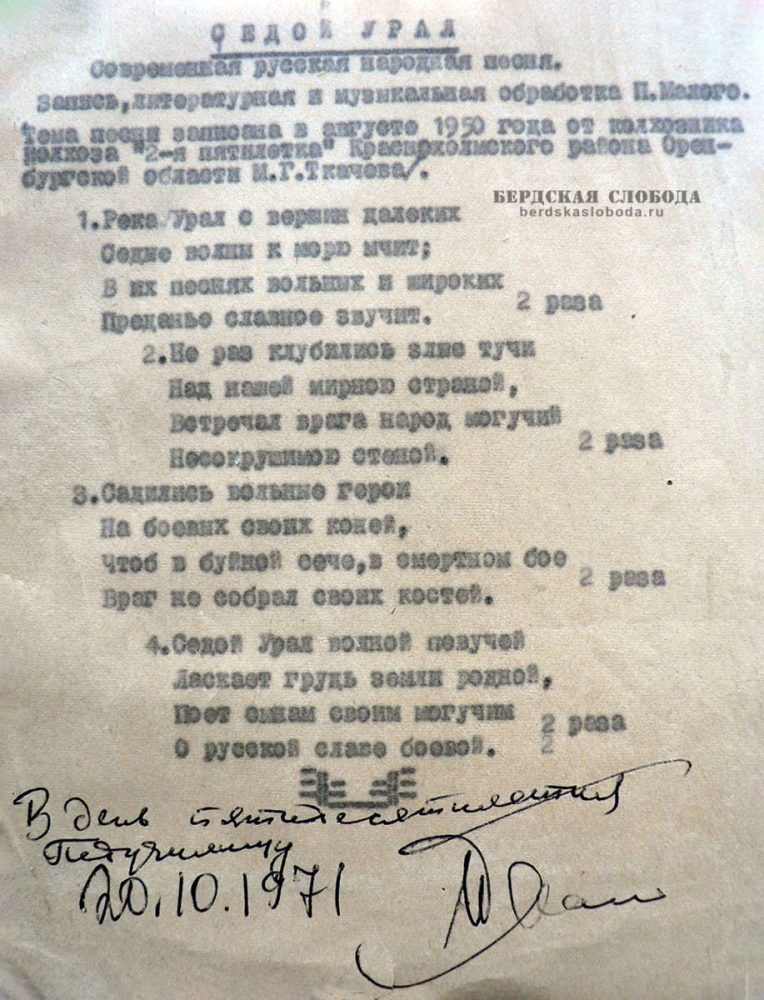 СЕДОЙ УРАЛ
Современная русская народная песня.
Запись,литературная и музыкальная обработка П.Малого.
Тема песни записана в августе 1950 года от колхозника
колхоза "2-я пятилетка" Краснохолмского района Орен-
бургской области М.Г.Ткачева/.
БЕРДСКАЯ СЛОБОДА
berdskasloboda.ru
1.Река Урал с вершин далеких
Седые волны к морю мчит;
В их песнях вольных и широких
Преданье славное звучит.
2 раза
2.Не раз клубились злые тучи
Над нашей мирною страной,
Встречал врага народ могучий
Несокрушимою стеной.
2 раза
3.Садились вольные герои
На боевых своих коней,
Чтоб в буйной сече,в смертном бое
Враг не собрал своих костей.
2 раза
4.Седой Урал волной певучей
Ласкает грудь земли родной,
Поет сынам своим могучим
О русской славе боевой.
2 раза
2
В день пятидесятилетия
Педучилищу
20.10.1971